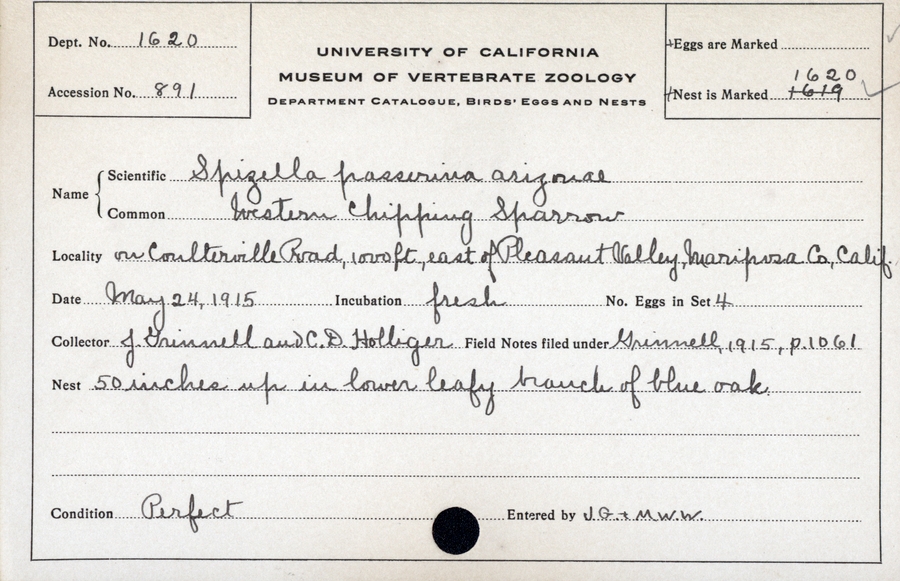 Dept. No. 1620
Accession No. 891
UNIVERSITY OF CALIFORNIA
MUSEUM OF VERTEBRATE ZOOLOGY
DEPARTMENT CATALOGUE, BIRDS' EGGS AND NESTS
Eggs are Marked
1620
Nest is Marked 1619
Name
Scientific Spizella passerina arizonae
Common Western Chipping Sparrow
Locality on Coulterville Road, 1000 ft., east of Pleasant Valley, Mariposa Co, Calif.
Date May 24, 1915 Incubation fresh No. Eggs in Set 4
Collector J. Grinnell and C. D. Holliger Field Notes filed under Grinnell, 1915, p. 1061
Nest 50 inches up in lower leafy branch of blue oak.
Condition Perfect Entered by J.G. + M.W.W.